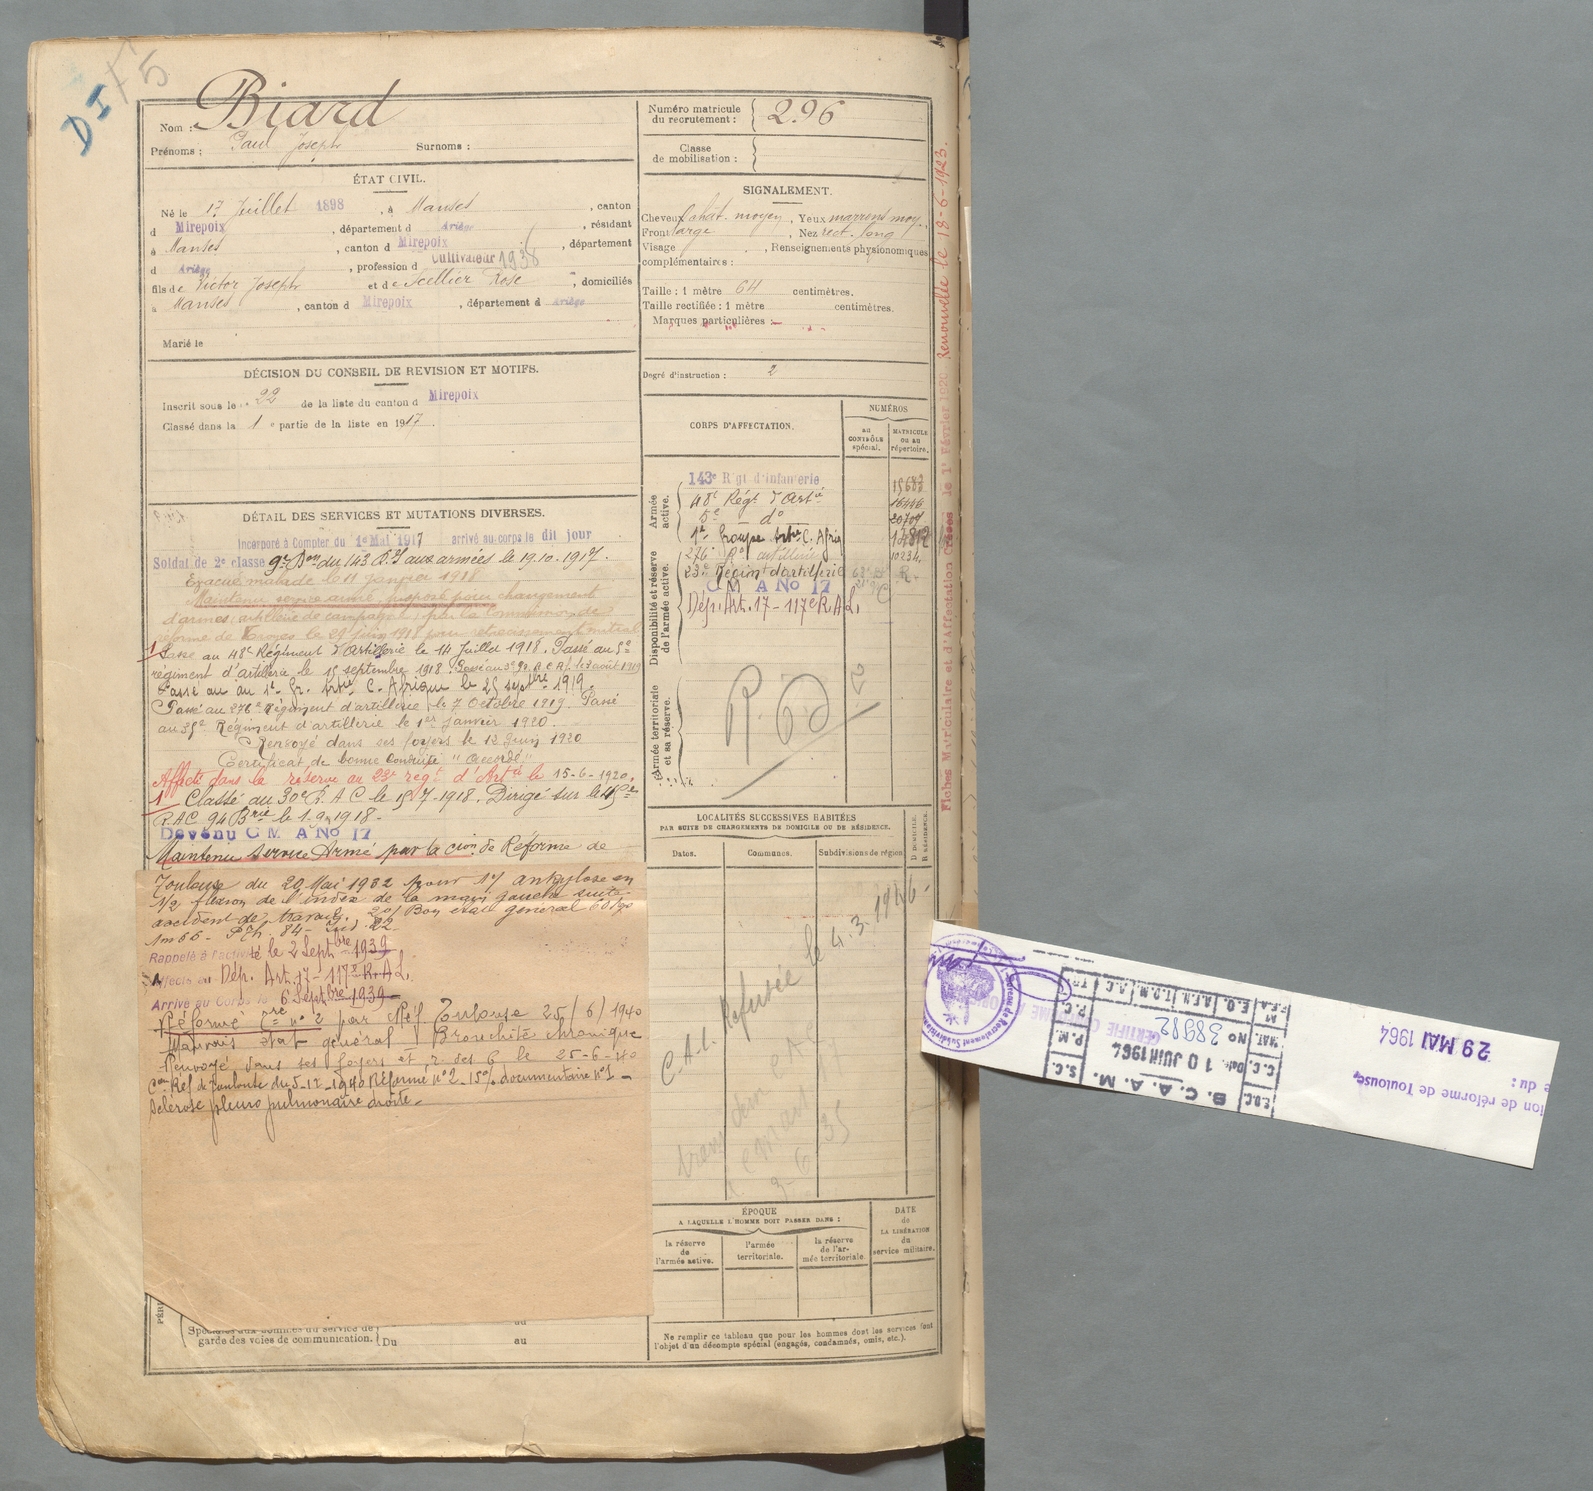 DI
5
Nom : Biard
Prénoms : Paul Joseph Surnoms :
ÉTAT CIVIL.
Né le 17 Juillet 1898, à Manses, canton
d Mirepoix, département d Ariège, résidant
à Manses, canton d Mirepoix, département
d Ariège, profession d Cultivateur 1938
fils de Victor Joseph et de Scellier Rose, domiciliés
à Manses, canton d Mirepoix, département d Ariège
Marié le
DÉCISION DU CONSEIL DE REVISION ET MOTIFS.
Inscrit sous le 22 de la liste du canton d Mirepoix
Classé dans la 1e partie de la liste en 1917.
DÉTAIL DES SERVICES ET MUTATIONS DIVERSES.
Incorporé à Compter du 1e Mai 1917 arrivé au corps le dit jour
Soldat de 2e classe 9e Bon du 143 R.I aux armées le 19.10.1917.
Evacué malade le 11 Janvier 1918
Maintenu service armé, proposé pour changement
d'armes, artillerie de campagne, par la Commission de
réforme de Troyes le 29 juin 1918 pour rétrécissement mitral
1 Passé au 48e Régiment d'Artillerie le 14 Juillet 1918. Passé au 5e
régiment d'artillerie le 15 septembre 1918. Passé au
Passé au au 1er Gr. Artie C. Afrique le 25 septbre 1919.
Passé au 276e Régiment d'artillerie le 7 Octobre 1919. Passé
au 35e Régiment d'artillerie le 1er Janvier 1920.
Renvoyé dans ses foyers le 12 Juin 1920
Certificat de bonne conduite "Accordé"
Affecté dans la réserve au 23e regt d'Artie le 15-6-1920.
1 Classé au 30e R.A.C le 15 7-1918. Dirigé sur le
R.A.C 94 Brie le 1.9.1918.-
Devenu C M A No 17
Maintenu Service Armé par la cion de Réforme de
Toulouse du 20 Mai 1932 pour 1°/ ankylose en
1/2 flexion de l'index de la main gauche suite
accident de travail. 2°/ Bon état général 60 kgs
1m66 - P.th. 84 - Ind. 22.
Rappelé à l'activité le 2 Septbre 1939
Affecté au Dép. Art. 17 - 117e R.A.L.
Arrivé au Corps le 6 Septbre 1939
Réformé n° 2 par Réf Toulouse 25/6/1940
Mauvais état général Bronchite chronique
Renvoyé dans ses foyers et r. des 6 le 25-6-40
Con Réf de Toulouse du 5-12-1940 Réformé n°2 - 15% documentaire n°1 -
Sclérose pleuro pulmonaire droite.
garde des voies de communication. Du au
au
Numéro matricule
du recrutement : 296
Classe
de mobilisation :
SIGNALEMENT.
Cheveux chât. moyen, Yeux marrons moy.
Front large, Nez rect. long
Visage, Renseignements physionomiques
complémentaires :
Taille : 1 mètre 64 centimètres.
Taille rectifiée : 1 mètre centimètres.
Marques particulières :
Degré d'instruction : 2
CORPS D'AFFECTATION.
NUMÉROS
au
CONTRÔLE
spécial.
MATRICULE
ou au
répertoire.
Armée
active.
143e Rgt d'infanterie 15683
48e Régt d'Artie 16446
5e do 20709
1er Groupe Artie C. Afrie
Disponibilité et réserve
de l'armée active.
276e Rt artillerie 10234
23e Régiment d'artillerie
C M A No 17
Dép. Art. 17 - 117e R.A.L.
Armée territoriale
et sa réserve.
LOCALITÉS SUCCESSIVES HABITÉES
PAR SUITE DE CHANGEMENTS DE DOMICILE OU DE RÉSIDENCE.
Dates.
Communes.
Subdivisions de région
D DOMICILE.
R RÉSIDENCE.
C.A.C. Refusée le 4.3.1946
ÉPOQUE
A LAQUELLE L'HOMME DOIT PASSER DANS :
la réserve
de
l'armée active.
l'armée
territoriale.
la réserve
de l'ar-
mée territoriale.
DATE
de
LA LIBÉRATION
du
service militaire.
Ne remplir ce tableau que pour les hommes dont les services font
l'objet d'un décompte spécial (engagés, condamnés, omis, etc.).
Fiches Matriculaire et d'Affectation Créées le 1er Février 1920 Renouvelle le 18-6-1923.
ion de réforme de Toulouse,
e du :
29 MAI 1964
B. C. A. A. M.
Date 10 JUIN 1964
No 38982
Bureau de Recrutement